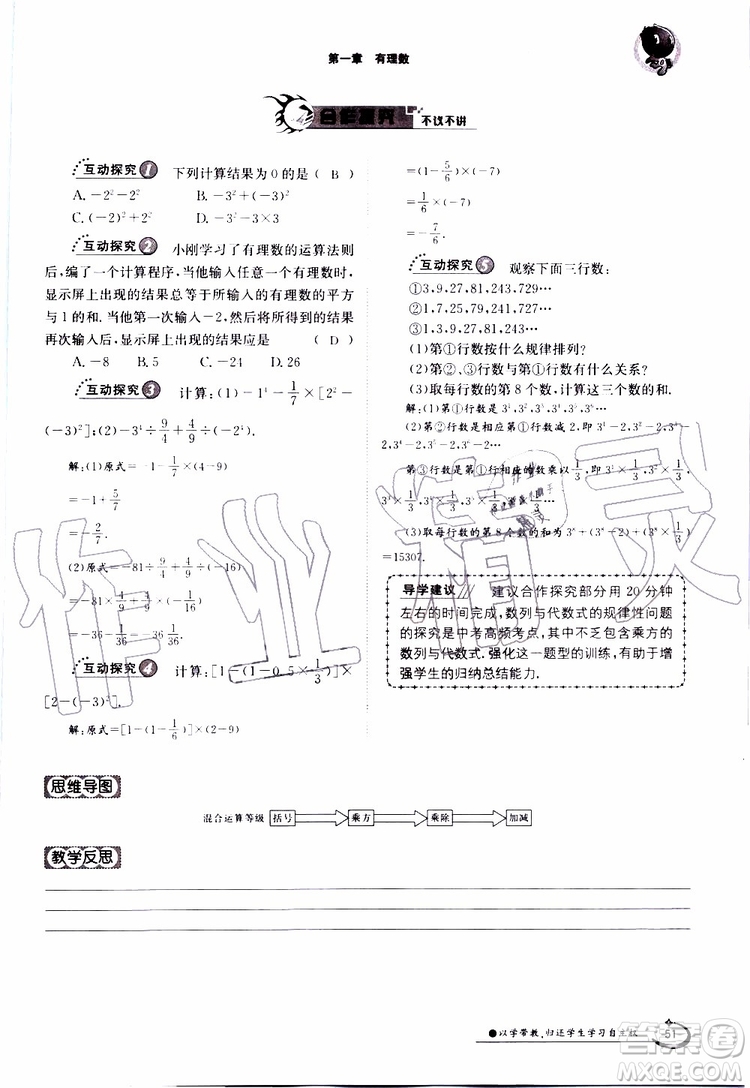 第一章 有理数
合作探究 不议不讲
互动探究1 下列计算结果为0的是( B )
A. -2²-2² B. -3²+(-3)²
C. (-2)²+2² D. -3²-3×3
互动探究2 小刚学习了有理数的运算法则
后,编了一个计算程序,当他输入任意一个有理数时,
显示屏上出现的结果总等于所输入的有理数的平方
与1的和.当他第一次输入-2,然后将所得到的结果
再次输入后,显示屏上出现的结果应是 ( D )
A. -8 B. 5 C. -24 D. 26
互动探究3 计算:(1)-1⁴-1/7×[2²-
(-3)²];(2)-3⁴÷9/4+9/4÷(-2⁴).
解:(1)原式=-1-1/7×(4-9)
=-1+5/7
=-2/7.
(2)原式=-81÷9/4+9/4÷(-16)
=-81×4/9-9/4×1/16
=-36-9/64=-36 9/64.
互动探究4 计算:[1-(1-0.5×1/3)]×
[2-(-3)²].
解:原式=[1-(1-1/6)]×(2-9)
=(1-5/6)×(-7)
=1/6×(-7)
=-7/6.
互动探究5 观察下面三行数:
①3,9,27,81,243,729…
②1,7,25,79,241,727…
③1,3,9,27,81,243…
(1)第①行数按什么规律排列?
(2)第②、③行数与第①行数有什么关系?
(3)取每行数的第8个数,求这三个数的和.
解:(1)第①行数是3¹,3²,3³,3⁴,3⁵,3⁶…
(2)第②行数是相应第①行数减2,即3¹-2,3²-
2,3³-2,3⁴-2,3⁵-2,3⁶-2…
第③行数是第①行相应的数乘以1/3,即3¹×1/3,
3²×1/3,3³×1/3,3⁴×1/3,3⁵×1/3,3⁶×1/3…
(3)取每行数的第8个数的和为3⁸+(3⁸-2)+(3⁸×1/3)
=15307.
导学建议 建议合作探究部分用20分钟
左右的时间完成,数列与代数式的规律性问题
的探究是中考高频考点,其中不乏包含乘方的
数列与代数式.强化这一题型的训练,有助于增
强学生的归纳总结能力.
思维导图
混合运算等级 括号 乘方 乘除 加减
教学反思
●以学带教,归还学生学习自主权 51
作业精灵
答案卷
MXQE.COM